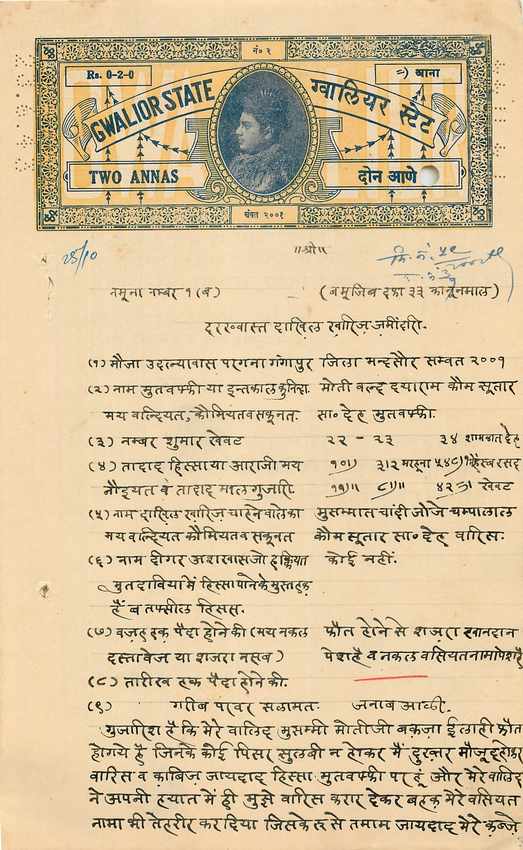 नं० २
Rs. 0-2-0
=) आना
GWALIOR STATE
ग्वालियर स्टेट
TWO ANNAS
दोन आणे
संवत २००१
२८/१०
॥श्री॥
नमूना नम्बर १ (ब) (बमूजिब दफा ३३ कानूनमाल)
दरख्वास्त दाखिल खारिज जमींदारि.
(१) मौजा उदल्यावास परगना गंगापुर जिला मन्दसौर सम्वत २००१
(२) नाम मुतवफ्फी या इन्तकाल कुनिन्दा मोती वल्द दयाराम कौम सूतार
मय वल्दियत, कौमियत व सकूनत. सा० देह मुतवफ्फी.
(३) नम्बर शुमार खेवट २२ - २३ ३४ शामलात देह
(४) तादाद हिस्सा या आराजी मय
नौइयत व तादाद मालगुजारि. खेवट
(५) नाम दाखिल खारिज चाहने वाले का मुसम्मात चांदी जोजे चम्पालाल
मय वल्दियत कौमियत व सकूनत कौम सूतार सा० देह वारिस.
(६) नाम दीगर अशखास जो हक्कियत कोई नहीं.
मुतदाविया में हिस्सा पाने के मुस्तहक
हैं व तफ्सील हिसस.
(७) वजह हक पैदा होने की (मय नकल फौत होने से शजरा खानदान
दस्तावेज या शजरा नसब) पेश है व नकल वसियतनामा पेश है
(८) तारीख हक पैदा होने की.
(९) गरीब परवर सलामत. जनाब आली.
गुजारिश है कि मेरे वालिद मुसम्मी मोतीजी बकजा ईलाही फौत
होगये है जिनके कोई पिसर सुलबी न होकर मैं दुख्तर मौजूद होकर
वारिस व काबिज जायदाद हिस्सा मुतवफ्फी पर हूं और मेरे वालिद
ने अपनी हयात में ही मुझे वारिस करार देकर बहक मेरे वसियत
नामा भी तेहरीर कर दिया जिसके रू से तमाम जायदाद मेरे कब्जे